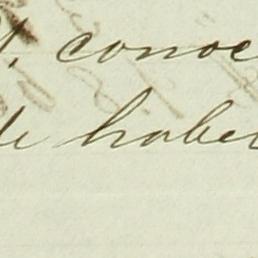 conoc
de haber